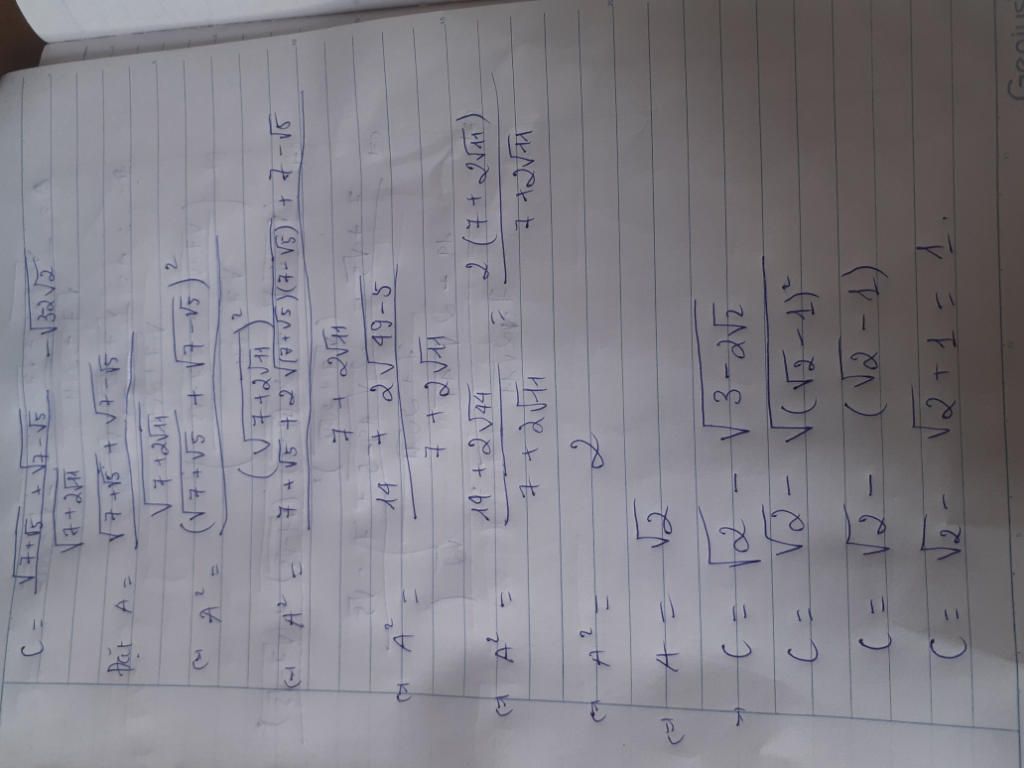 C = \frac{\sqrt{7+\sqrt{5}} + \sqrt{7-\sqrt{5}}}{\sqrt{7+2\sqrt{11}}} - \sqrt{32\sqrt{2}}
Đặt A = \frac{\sqrt{7+\sqrt{5}} + \sqrt{7-\sqrt{5}}}{\sqrt{7+2\sqrt{11}}}
(=) A² = \frac{(\sqrt{7+\sqrt{5}} + \sqrt{7-\sqrt{5}})²}{(\sqrt{7+2\sqrt{11}})²}
(=) A² = \frac{7+\sqrt{5} + 2\sqrt{(7+\sqrt{5})(7-\sqrt{5})} + 7-\sqrt{5}}{7+2\sqrt{11}}
(=) A² = \frac{14 + 2\sqrt{49-5}}{7+2\sqrt{11}}
(=) A² = \frac{14 + 2\sqrt{44}}{7+2\sqrt{11}} = \frac{2(7+2\sqrt{11})}{7+2\sqrt{11}}
(=) A² = 2
(=) A = \sqrt{2}
=) C = \sqrt{2} - \sqrt{3-2\sqrt{2}}
C = \sqrt{2} - \sqrt{(\sqrt{2}-1)²}
C = \sqrt{2} - (\sqrt{2}-1)
C = \sqrt{2} - \sqrt{2} + 1 = 1.
Genius